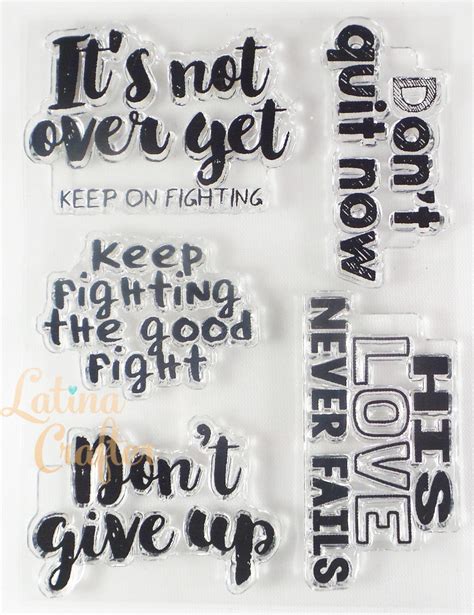 It's not
over yet
KEEP ON FIGHTING
Don't
quit now
Keep
fighting
the good
fight
HIS
LOVE
NEVER FAILS
Don't
give up
Latina
Crafter